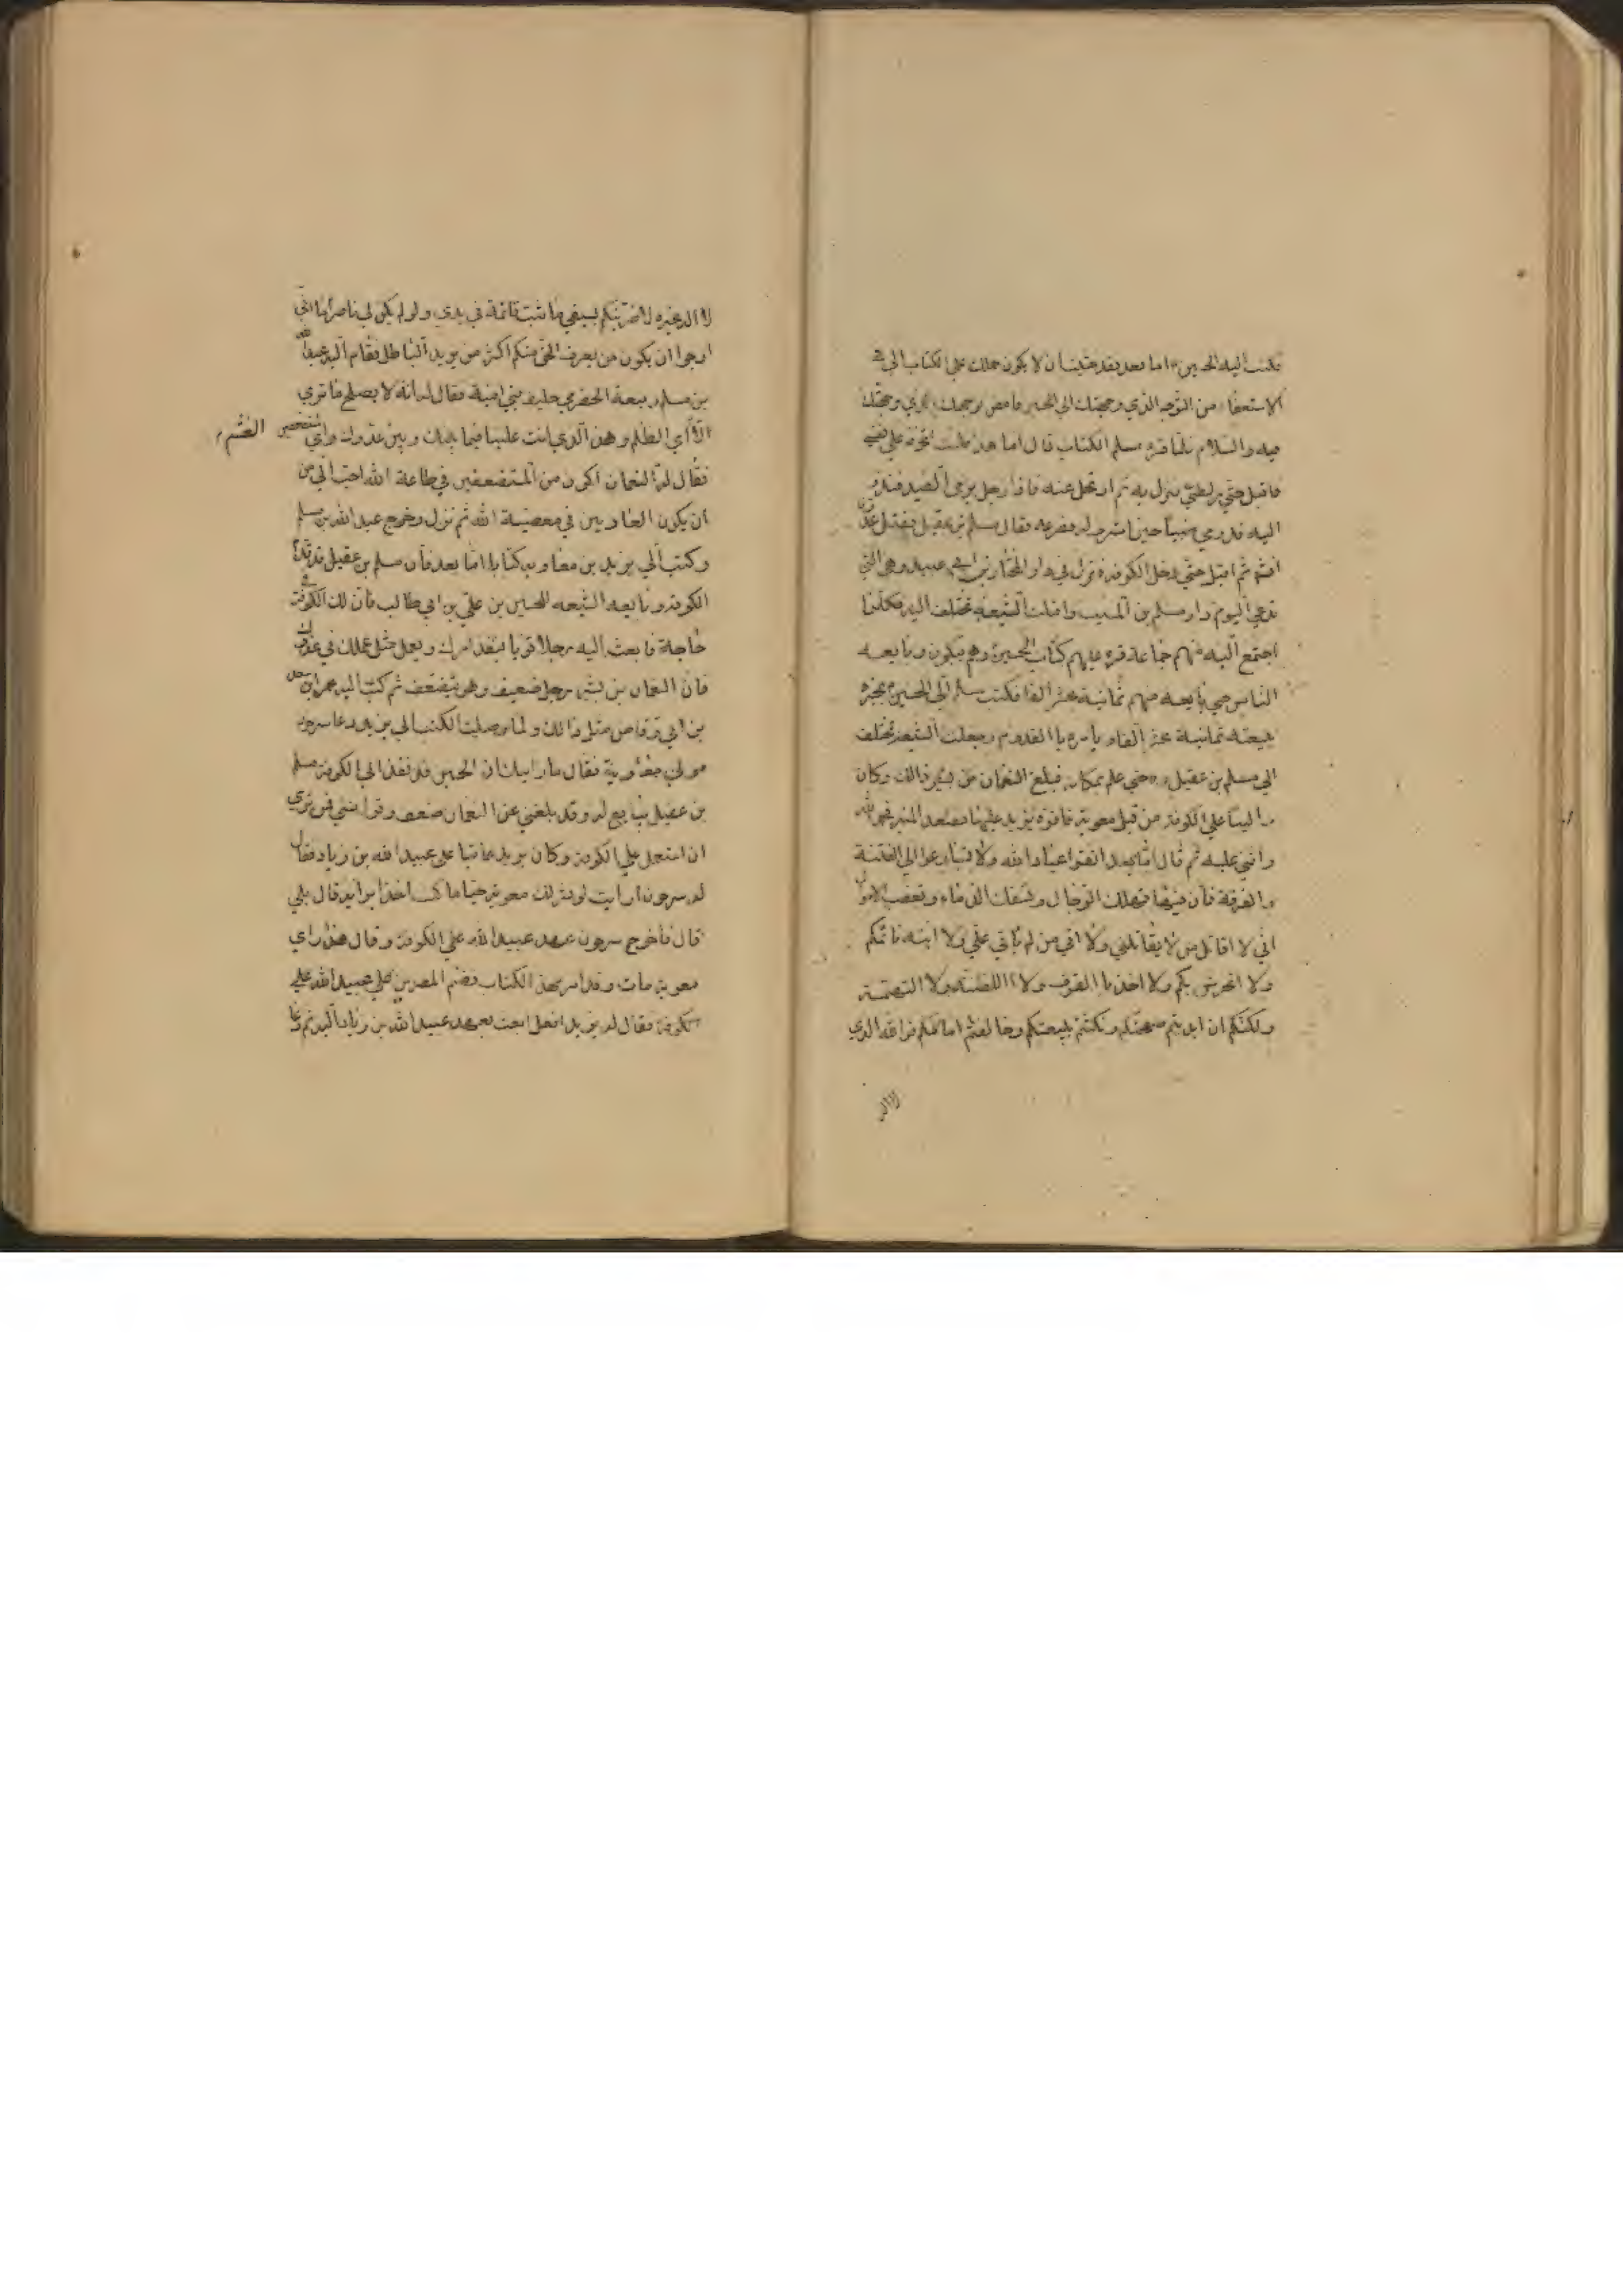 فكتب اليه الحسين اما بعد فقد خشيت ان لا يكون حملك على الكتاب الي في
الاستعفاء من التوجه الذي وجهتك الي فامض لوجهك الذي وجهتك
فيه والسلام فلما قرء مسلم الكتاب قال اما هذا فلست اتخوفه على نفسي
فاقبل حتي لطي نزل به ثم ارتحل عنه فاذا رجل يرمي الصيد فنظر
اليه قد رمي ظبيا حين اشرف له فصرعه فقال مسلم بن عقيل يقتل عدونا
انشاء ثم اقبل حتي دخل الكوفة فنزل في دار المختار بن ابي عبيد وهي التي
تدعي اليوم دار مسلم بن المسيب واقبلت الشيعة تختلف اليه فكلما
اجتمع اليه منهم جماعة قرء عليهم كتاب الحسين وهم يبكون وبايعه
الناس حتي بايعه منهم ثمانية عشر الفا فكتب مسلم الي الحسين يخبره
ببيعته ثمانية عشر الفا ويأمره با القدوم وجعلت الشيعة تختلف
الي مسلم بن عقيل حتي علم بمكانه فبلغ النعمان بن بشير ذالك وكان
واليا علي الكوفة من قبل معوية فاقره يزيد عليها فصعد المنبر فحمد الله
واثني عليه ثم قال اما بعد اتقوا عباد الله ولا تسارعوا الي الفتنة
والفرقة فان فيها تهلك الرجال وتسفك الدماء وتغصب الاموال
اني لا اقاتل من لا يقاتلني ولا اتي من لم يأتي علي ولا انبه نائمكم
ولا اتحرش بكم ولا اخذ با القرف ولا االظنة ولا التهمة
ولكنكم ان ابديتم صفحتكم ونكثتم بيعتكم وخالفتم امامكم فوالله الذي
لا اله
لا اله غيره لاضربنكم بسيفي ما ثبت قائمة في يدي ولو لم يكن لي ناصر اما اني
ارجوا ان يكون من يعرف الحق منكم اكثر من يريد الباطل فقام اليه عبد الله
بن مسلم ربيعة الحضرمي حليف بني امية فقال له انه لا يصلح ما تري
الا اي الظلم وهذا الذي انت عليه فيما بينك وبين عدوك راي المستضعفين الغشم
فقال له النعمان اكون من المستضعفين في طاعة الله احب الي من
ان يكون الغاوبين في معصية الله ثم نزل وخرج عبد الله بن مسلم
وكتب الي يزيد بن معاويه كتابا اما بعد فان مسلم بن عقيل قد قدم
الكوفة وبايعه الشيعه للحسين بن علي بن ابي طالب فان لك في الكوفة
حاجة فابعث اليه رجلا قويا ينفذ امرك ويعمل مثل عملك في عدوك
فان النعمان بن بشير رجل ضعيف وهو يتضعف ثم كتب اليه عمر بن سعد
بن ابي وقاص مثل ذالك ولما وصلت الكتب الي يزيد دعا سرجون
مولي معاوية فقال ما رايك ان الحسين قد نفذ الي الكوفة مسلم
بن عقيل يبايع له وقد بلغني عن النعمان ضعف وقول سئي فمن تري
ان استعمل علي الكوفة وكان يزيد عاتبا علي عبيد الله بن زياد فقال
له سرجون ارايت لو نشر لك معوية حيا ما كنت اخذا برايه قال بلي
قال فاخرج سرجون عهد عبيد الله علي الكوفة وقال هذا راي
معوية مات وقد امر بهذا الكتاب فضم المصرين الي عبيد الله علي
الكوفة فقال له يزيد افعل ابعث بعهد عبيد الله بن زياد اليه ثم دعا